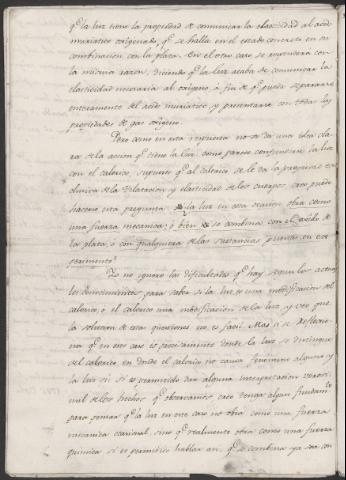 qe. la luz tiene la propiedad de comunicar la elasticidad al acido
muriatico oxigenado, qe. se halla en el estado concreto en su
combinacion con la plata. En el otro caso se responderá con
la misma razon, diciendo qe. la luz acaba de comunicar la
elasticidad necesaria al oxigeno, á fin de qe. pueda separarse
enteramente del acido muriatico, y presentarse con todas las
propiedades de gas oxigeno.
Pero como en esta respuesta no se da una idea cla
ra de la accion qe. tiene la luz, como parece confundirse la luz
con el calorico, supuesto qe. al calorico se le da la propiedad ex
clusiva de la dilatacion y elasticidad de los cuerpos, aun puede
hacerse esta pregunta: la luz en esta ocasion obra como
una fuerza mecanica; ó bien se combina con el oxido de
la plata, ó con qualquiera de las sustancias puestas en ex
perimento?
Yo no ignoro las dificultades qe. hay segun los actua
les conocimientos para saber si la luz es una modificacion del
calorico, ó el calorico una modificacion de la luz, y veo que
la solucion de estas questiones no es facil. Mas si se reflexio
na qe. en este caso es precisamente donde la luz se distingue
del calorico, en donde el calorico no causa fenomeno alguno y
la luz sí: si es permitido dar alguna interpretacion verosi
mil de los hechos qe. observamos, creo tengo algun fundamto.
para pensar qe. la luz en este caso no obra como una fuerza
mecanica ocasional, sino qe. realmente obra como una fuerza
quimica si es permitido hablar asi, qe. se combina ya sea con